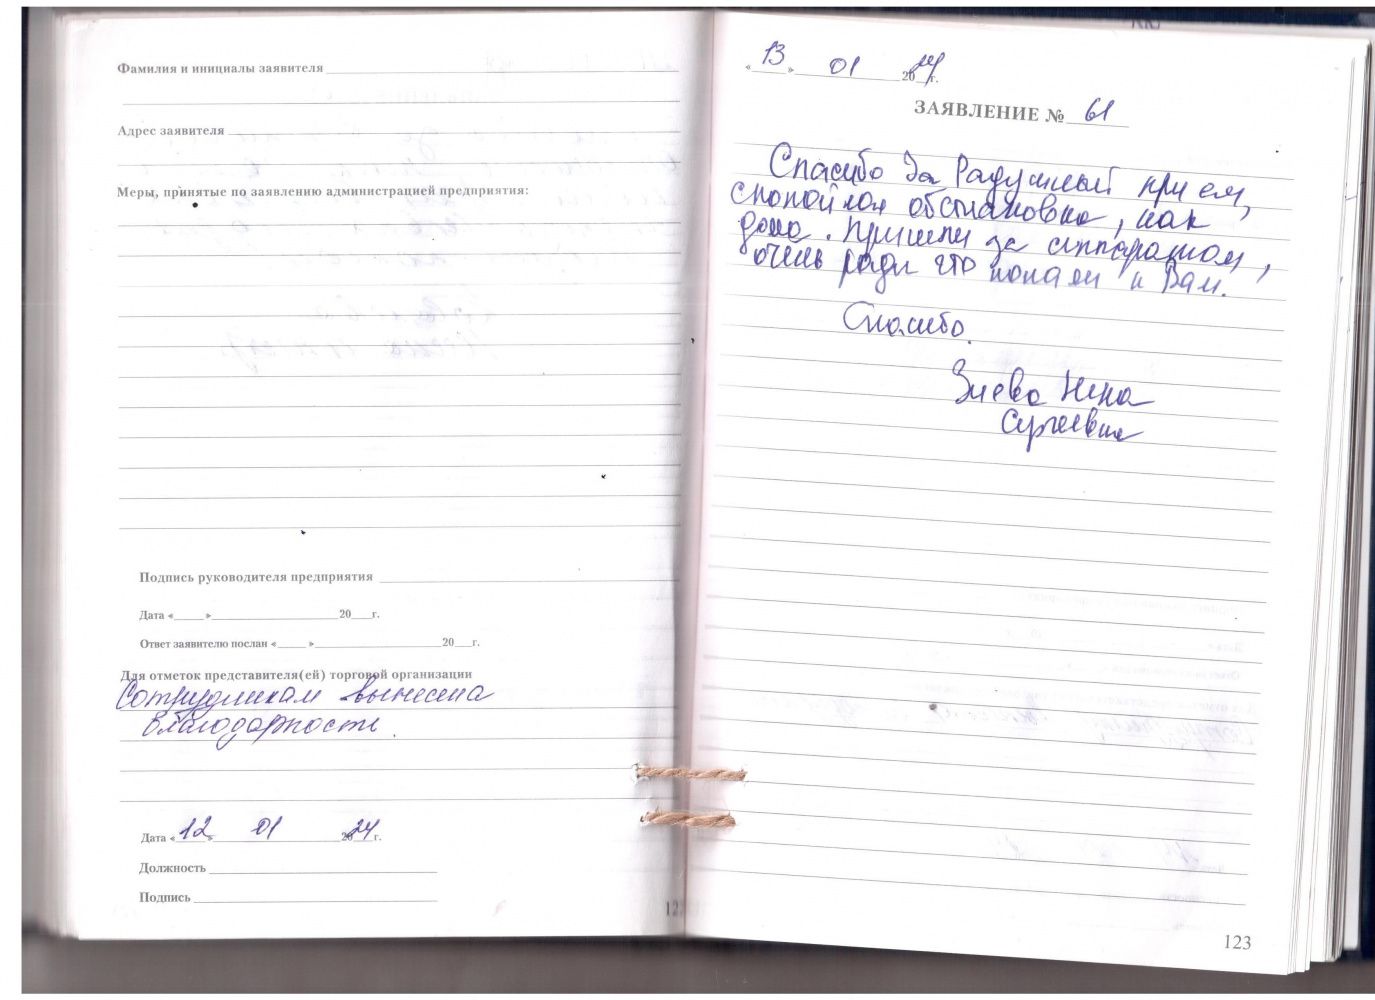 Фамилия и инициалы заявителя
Адрес заявителя
Меры, принятые по заявлению администрацией предприятия:
Подпись руководителя предприятия
Дата « » 20 г.
Ответ заявителю послан « » 20 г.
Для отметок представителя(ей) торговой организации
Сотрудникам вынесена
благодарность.
Дата «12» 01 2024 г.
Должность
Подпись
«13» 01 2024 г.
ЗАЯВЛЕНИЕ № 61
Спасибо за Радушный прием,
спокойная обстановка, как
дома. Пришли за аппаратом,
очень рады что попали к Вам.
Спасибо.
Зиева Нина
Сергеевна
123